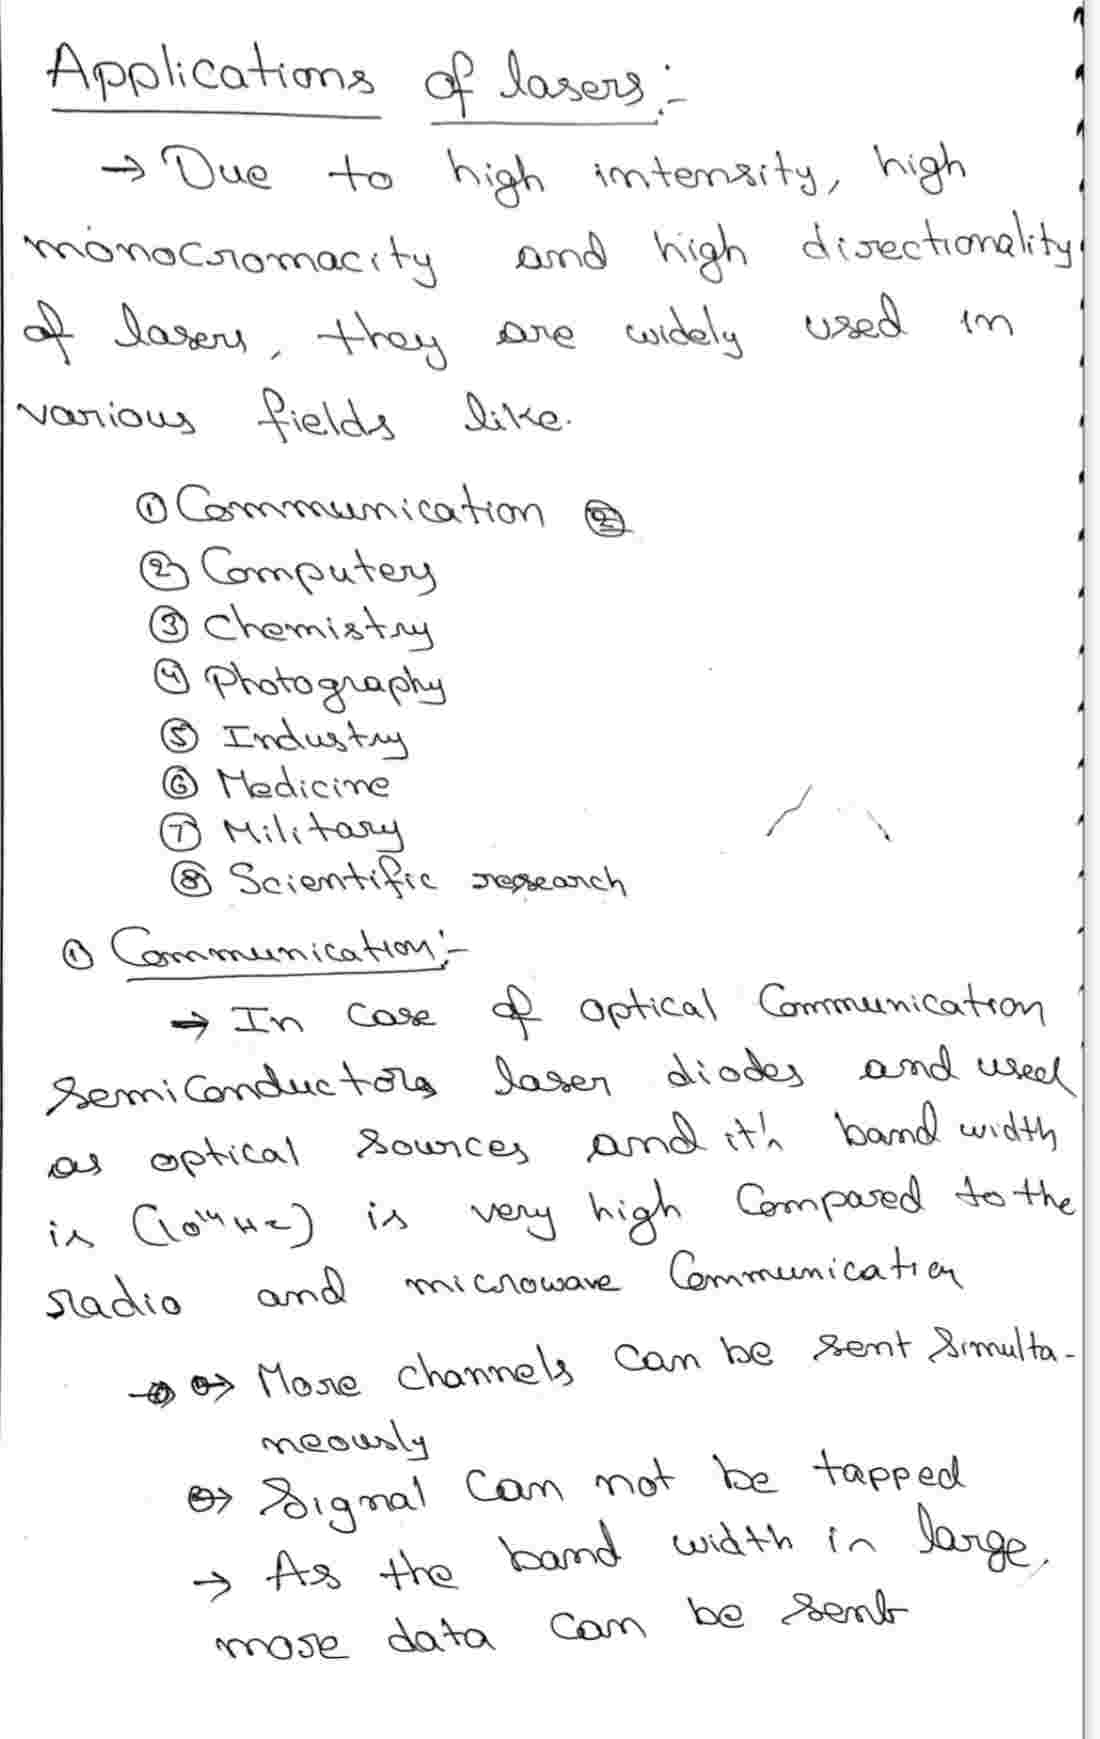 Applications of lasers:-
→ Due to high intensity, high
monocromacity and high directionality
of lasers, they are widely used in
various fields like.
① Communication ②
② Computers
③ Chemistry
④ Photography
⑤ Industry
⑥ Medicine
⑦ Military
⑧ Scientific research
① Communication:-
→ In case of optical Communication
semiconductors laser diodes and used
as optical sources and it's band width
is (10¹⁴ Hz) is very high Compared to the
radio and microwave Communication
→ More channels can be sent simulta-
neously
→ Signal can not be tapped
→ As the band width is large,
more data can be sent